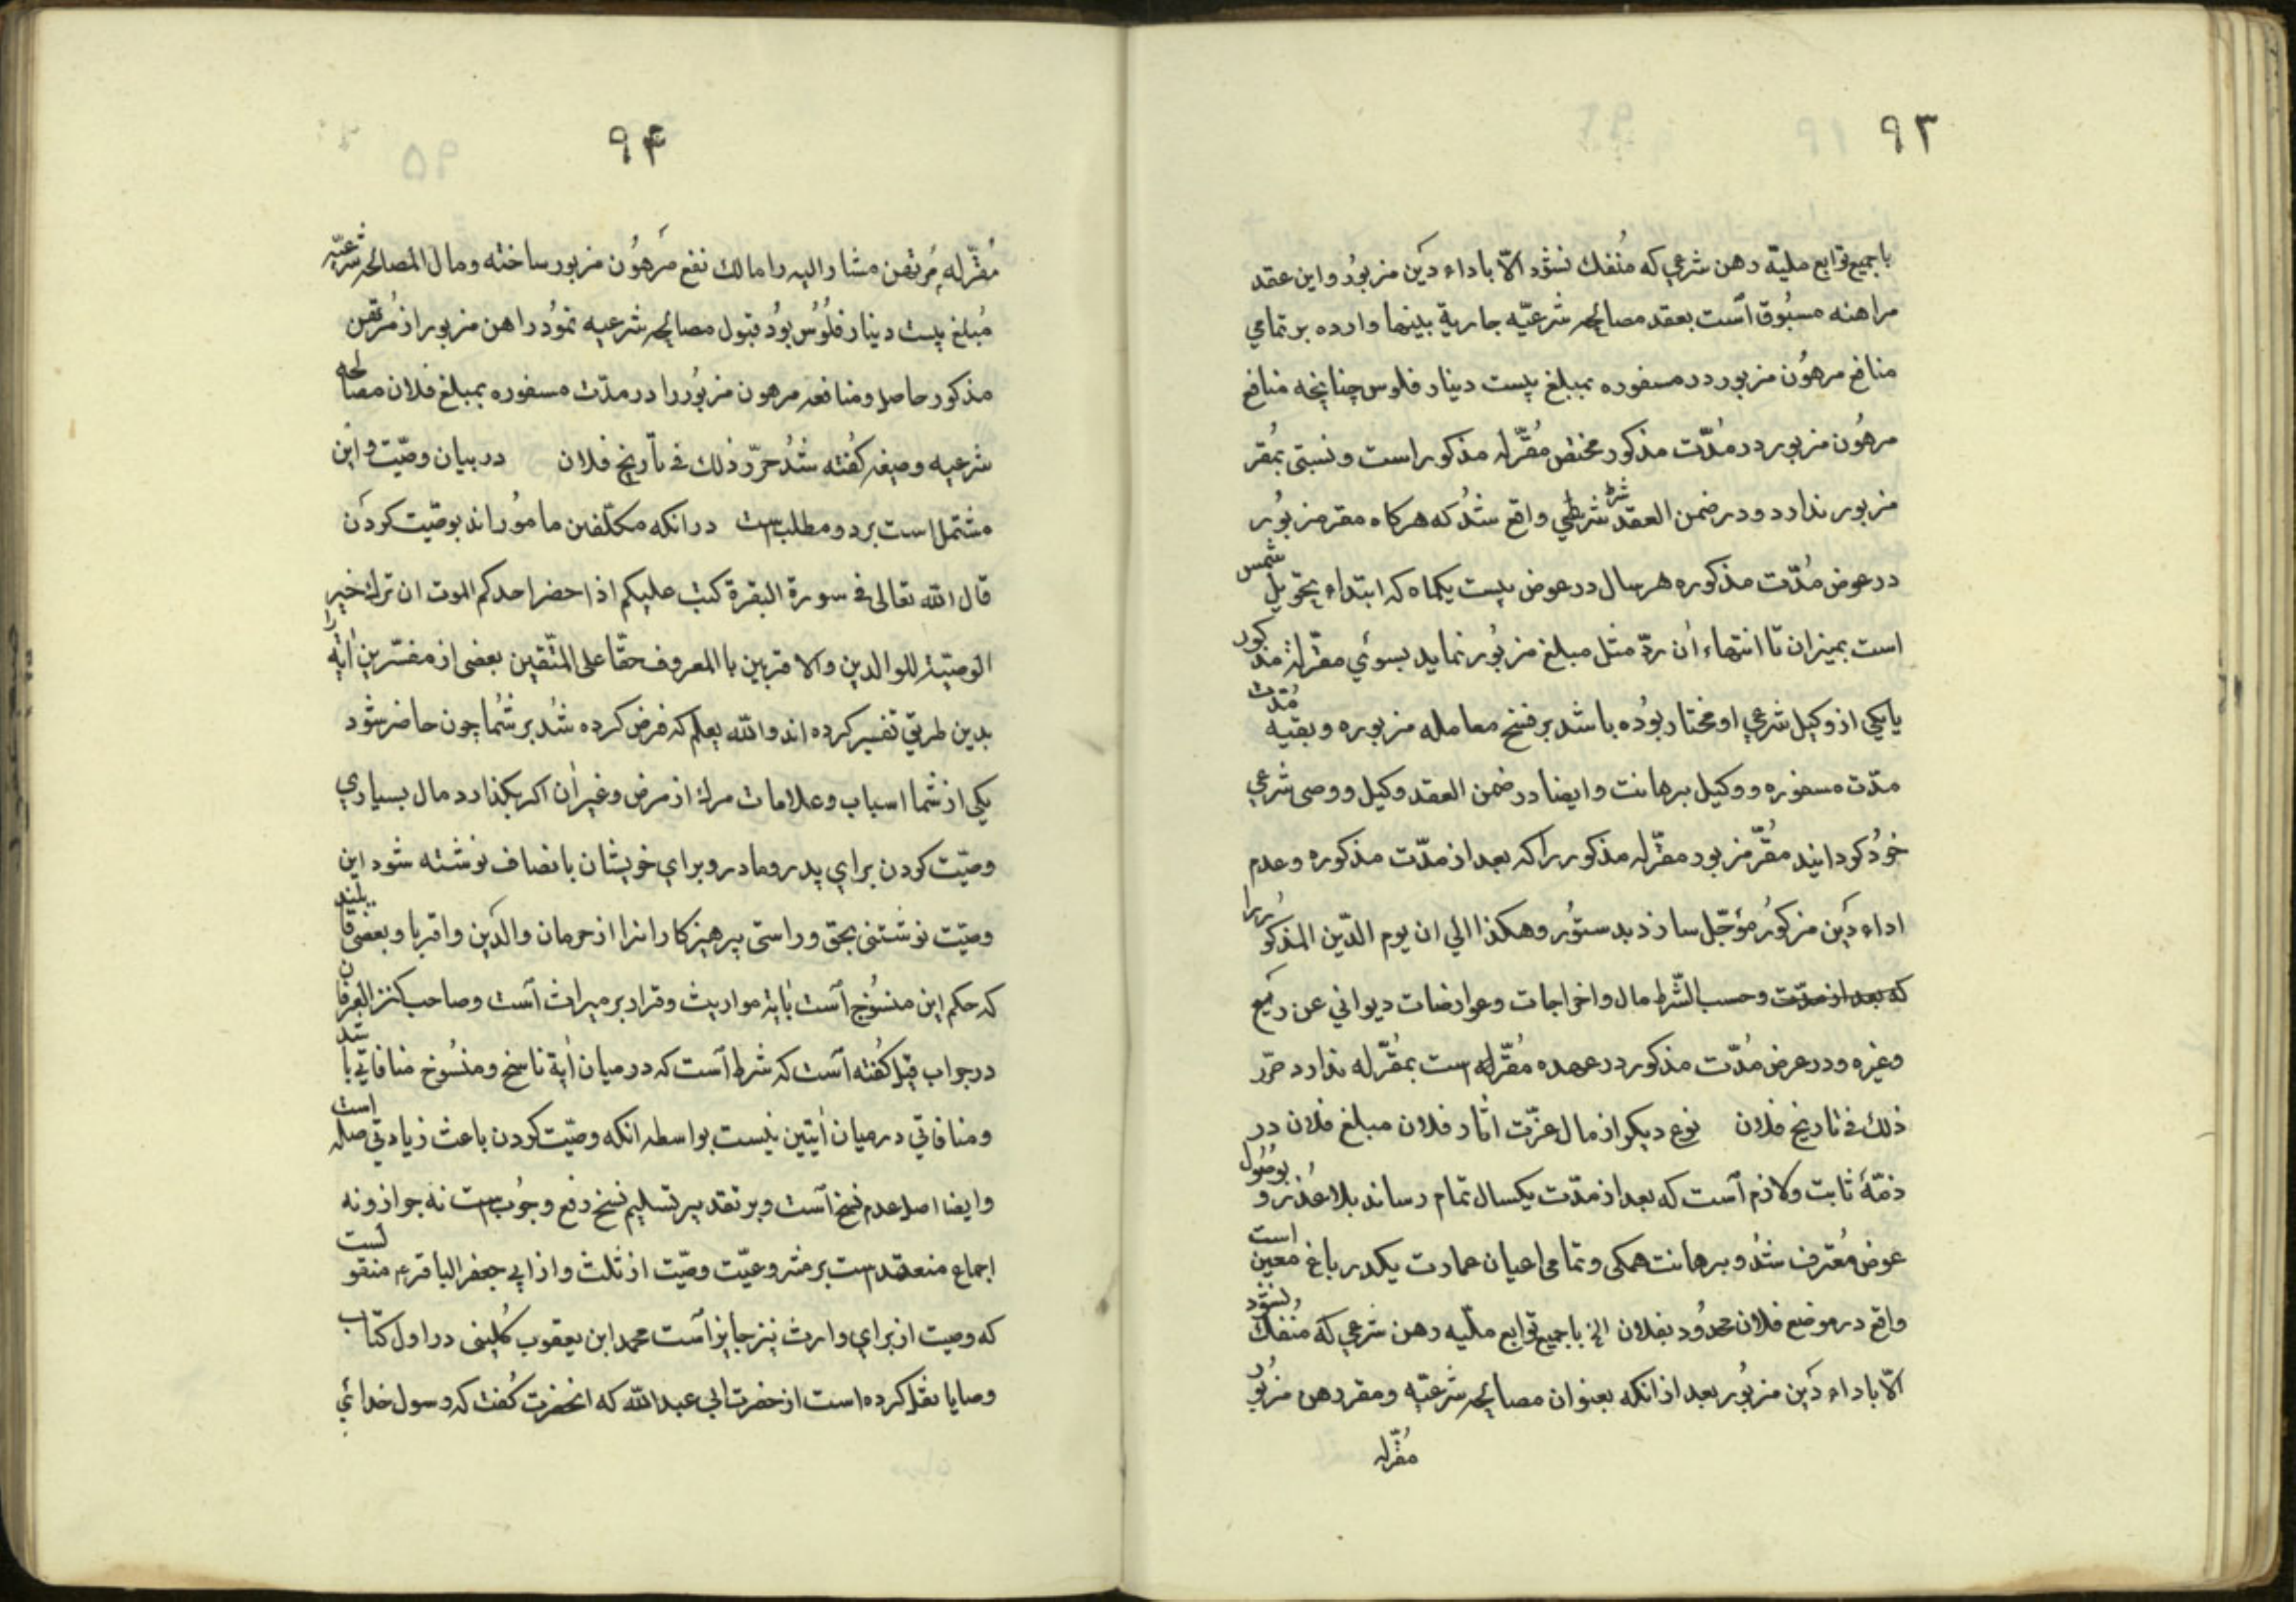 ۹۳
باجمیع توابع ملیّه رهن شرعي که مُنفك نشود الّا باداء دَین مزبوُر واین عقد
مراهنه مسبُوق اَست بعقد مصالحه شرعیّه جاریة بینهما وارده بر تمامي
منافع مرهوُن مزبور در مسفوره بمبلغ بیست دینار فلوس چنانچه منافع
مرهوُن مزبور در مُدّت مذکور مختص مُقرّله مذکور است ونسبتی بمُقر
مزبور ندارد ودر ضمن العقد شرط شرطي واقع شُد که هرکاه مقر مزبوُر
در عوض مُدّت مذکوره هر سال در عوض بیست یکماه که ابتداء تحویل شمس
است بمیزان تا انتهاء اُن ردّ مثل مبلغ مزبُور نماید بسوئي مقرّله مذکور
یا یکي از وکیل شرعي او مختار بوُده باشد بر فسخ معامله مزبوره وبقیه مُدّت
مدّت مسفوره ووکیل برهانت وایضا در ضمن العقد وکیل ووصی شرعي
خوُد کردانید مُقرّ مزبور مقرّله مذکور را که بعد از مدّت مذکوره وعدم
اداء دَین مزکوُر مؤجّل سازد بدستوُر وهکذا الي ان یوم الدّین المذکوُر را
که بعد از مدّت وحسب الشّرط مال واخراجات وعوارضات دیواني عن رَیع
وغیره ودر عرض مُدّت مذکور در عهده مُقرّله است بمُقرّله ندارد حرّر
ذلك في تاریخ فلان نوع دیکر از مال عزّت اثار فلان مبلغ فلان در
ذمّهٔ ثابت ولازم اَست که بعد از مدّت یکسال تمام رساند بلا عُذر و بوُصُول
عوض مُعترف شُد و برهانت همکی وتمامی اعیان عمارت یکدر باغ معین است
واقع در موضع فلان محدوُد بفلان الخ باجمیع توابع ملّیه رهن شرعي که مُنفك نشود
الّا باداء دَین مزبوُر بعد از انکه بعنوان مصالحه شرعیّه ومقر رهن مزبُور
مُقرّله
۹۴
مُقرّله مُرتهن مشار الیه را مالك نفع مَرهوُن مزبور ساخته ومال المصالحه شرعیّه
مُبلغ بیست دینار فلُوُس بوُد قبول مصالحه شرعیه نموُد راهن مزبور از مُرتهن
مذکور حاصل ومنافعه مرهون مزبُور را در مدّت مسفوره بمبلغ فلان مصالحه
شرعیه وصیغه کُفته شُد حرّر ذلك في تأریخ فلان در بیان وصّیت واین
مشتمل است بر دو مطلب است در انکه مکلّفین ماموُراند بوصّیت کردَن
قال الله تعالی في سورة البقرة کتب علیکم اذا حضر احدکم الموت ان ترك خیرا
الوصیّة للوالدین والاقربین با المعروف حقّا علی المتّقین بعضی از مفسّرین اٰیة
بدین طریق تفسیر کرده اند والله یعلم که فرض کرده شُد بر شُما چون حاضر شود
یکی از شما اسباب وعلامات مرك از مرض وغیر اٰن اکر بکذارد مال بسیاري
وصّیت کردن براي پدر ومادر وبراي خویشان بانصاف نوشته شود این
وصّیت نوشتنی بحق وراستی پرهیزکارانرا از حرمان والدَین واقربا وبعضی قایلند
که حکم این منسُوخ اَست باٰیهٔ مواریث وقرار بر میراث اَست وصاحب کنز العرفان
در جواب قیل کُفته اَست که شرط اَست که در میان اٰیة ناسخ ومنسُوخ منافاتي باشد
ومنافاتي در میان اٰیتین نیست بواسطه انکه وصّیت کردن باعث زیادتي صله است
وایضا اصل عدم نسخ اَست وبر تقدیر تسلیم نسخ رفع وجُوب است نه جواز ونه
اجماع منعقد است بر مشروعیّت وصّیت از ثلث واز ابي جعفر الباقر ع منقولست
که وصیت از براي وارث نیز جایز اَست محمد ابن یعقوب کُلینی در اول کتاب
وصایا نقل کرده است از حضرت ابي عبد الله که انحضرت کُفت که رسول خدائي